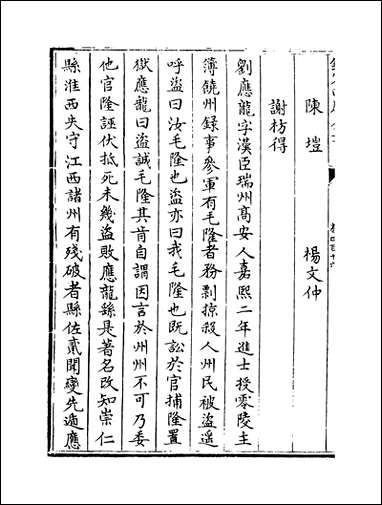 陳塏　楊文仲
謝枋得
劉應龍字漢臣瑞州高安人嘉熙二年進士授零陵主
簿饒州錄事參軍有毛隆者務剽掠殺人州民被盜遥
呼盜曰汝毛隆也盜亦曰我毛隆也既訟於官捕隆置
獄應龍曰盜誠毛隆其肯自謂因言於州州不可乃委
他官隆誣伏抵死未幾盜敗應龍繇是著名改知崇仁
縣淮西失守江西諸州有殘破者縣佐貳聞變先遁應